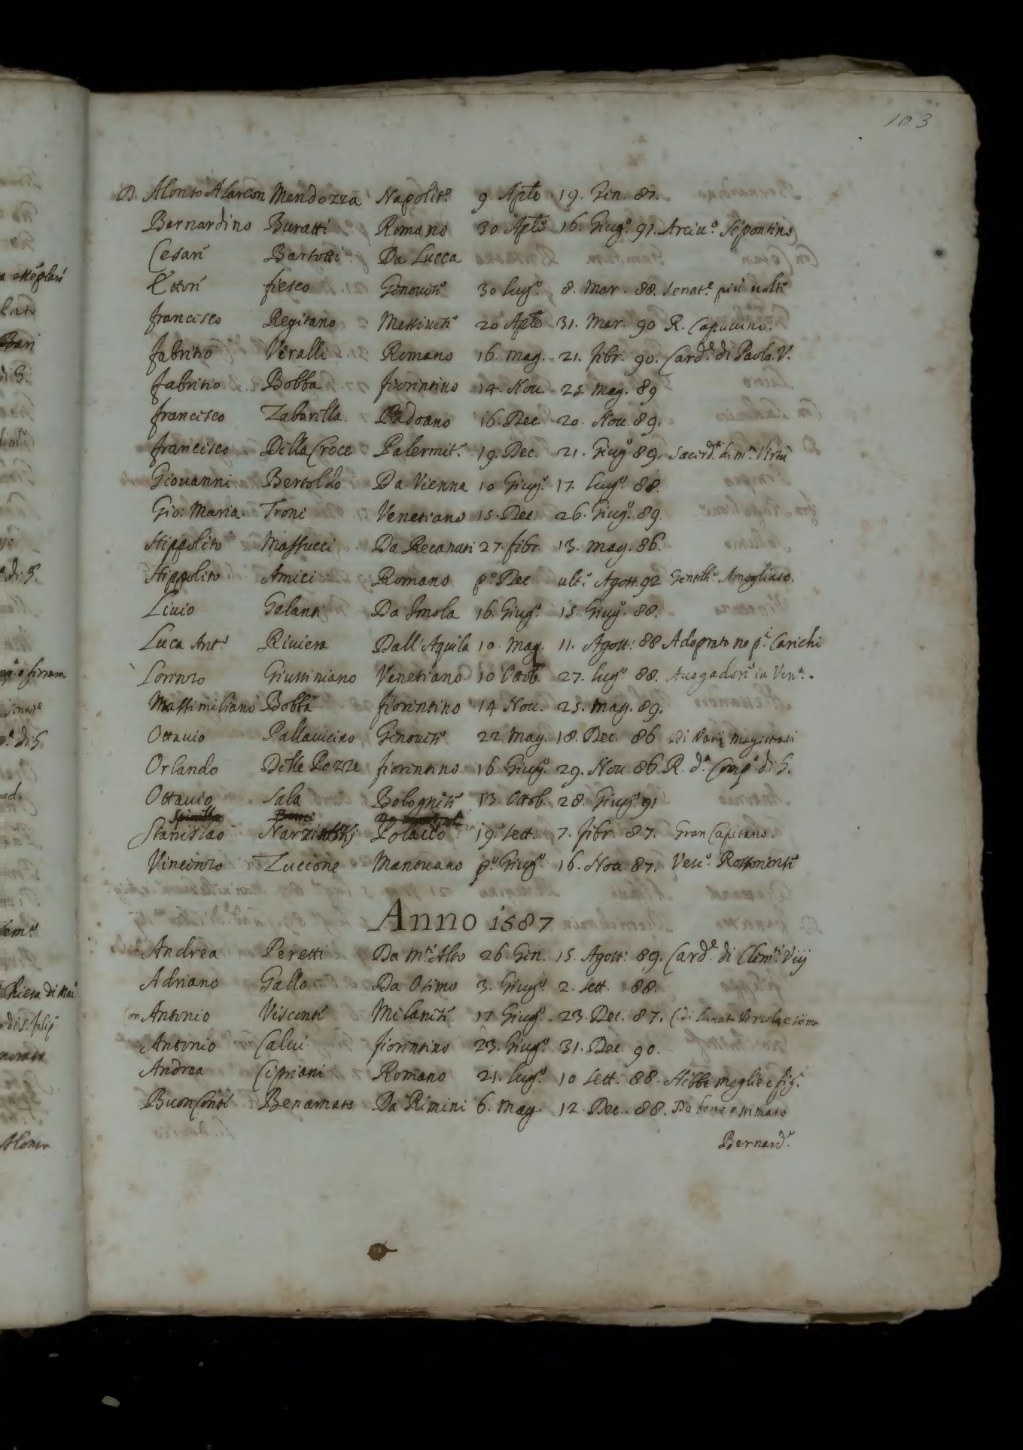 103
D. Alonso Alarcon Mendozza Napolit.º 9. Aple 19. Gen. 87.
Bernardino Buratti Romano 30 Aple 16. Giug.º 91. Arciu.º Sipontino
Cesare Bartotti Da Lucca
Ettore fiesco Genouese 30 lug.º 8. Mar. 88. Senat.e più uolte
francesco Regitano Messinese 20 Aple 31. Mar. 90 R. Capuccino.
fabritio Veralli Romano 16. mag. 21. febr. 90. Card.e di Paolo V.
fabritio Bobba fiorentino 14. Nou. 25. mag. 89
francesco Zabarella Padoano 16. Dec. 20. Nou. 89.
francesco Della Croce Palermit.º 19. Dec. 21. Giug.º 89. Sacerd.e di m.ª Virtù
Giouanni Bertoldo Da Vienna 10 Giug.º 17. lug.º 88.
Gio: Maria Troni Venetiano 15. Dec. 26. Giug.º 89.
Hippolito Massucci Da Recanati 27. febr. 13. mag. 86.
Hippolito Amici Romano p.º Dec ult.º Agost. 92 Gentilh.º Amogliato.
Liuio Galanti Da Imola 16. Giug.º 15. Giug.º 88.
Luca Ant.º Riuiera Dall'Aquila 10. Mag. 11. Agost. 88 Adoprato ne p.i Carichi
Lorenzo Giustiniano Venetiano 10 Ottob. 27. lug.º 88. Auogadore in Ven.ª
Massimiliano Bobba fiorentino 14 Nou. 25. mag. 89.
Ottauio Pallauicino Genouese 22. mag. 18. Dec. 86 Di Varij Magistrati
Orlando Delle Pozze fiorentino 16 Giug.º 29. Nou. 86. R. d.ª Comp.ª di G.
Ottauio Sala Bolognese 13. Ottob. 28. Giug.º 91
Stanislao Narzimskj Polacco 19. Sett. 7. febr. 87. Gran Capitano.
Vincenzo Zuccone Mantuano p.º Giug.º 16. Nou. 87.
Anno 1587
Andrea Peretti Da M.te Alto 26. Gen. 15. Agost. 89. Card.e di Clem.e Viij
Adriano Gallo Da Osimo 3. Giug.º 2. Sett. 88.
Con Antonio Visconte Milanese 17 Giug.º 23. Dec. 87.
Antonio Calui fiorentino 23. Giug.º 31. Dec 90.
Andrea Cipriani Romano 21. lug.º 10 Sett. 88. Hebbe moglie e fig.i
Buonconte Benamato Da Rimini 6. mag. 12. Dec. 88.
Bernard.º